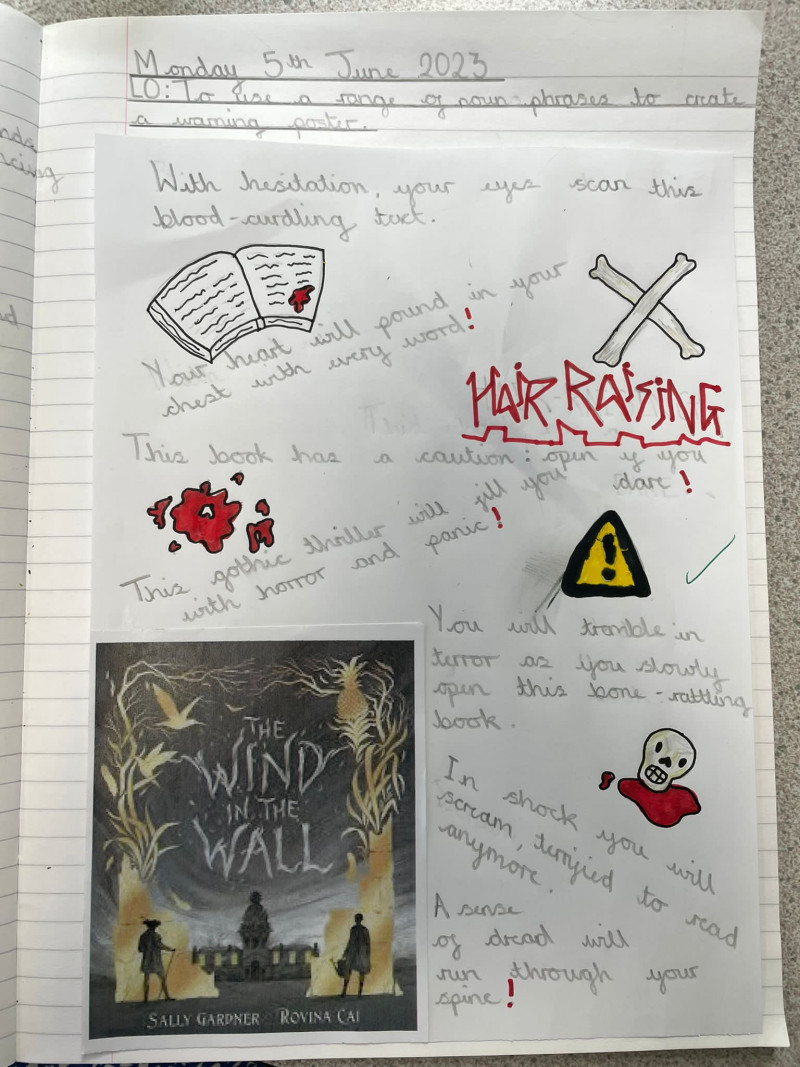 Monday 5th June 2023
LO: To use a range of noun phrases to create
a warning poster.
With hesitation, your eyes scan this
blood-curdling text.
Your heart will pound in your
chest with every word!
HAIR RAISING
This book has a caution: open if you
dare!
This gothic thriller will fill you
with horror and panic!
You will tremble in
terror as you slowly
open this bone-rattling
book.
In shock you will
scream, terrified to read
anymore.
A sense
of dread will
run through your
spine!
THE
WIND
IN THE
WALL
SALLY GARDNER ROVINA CAI